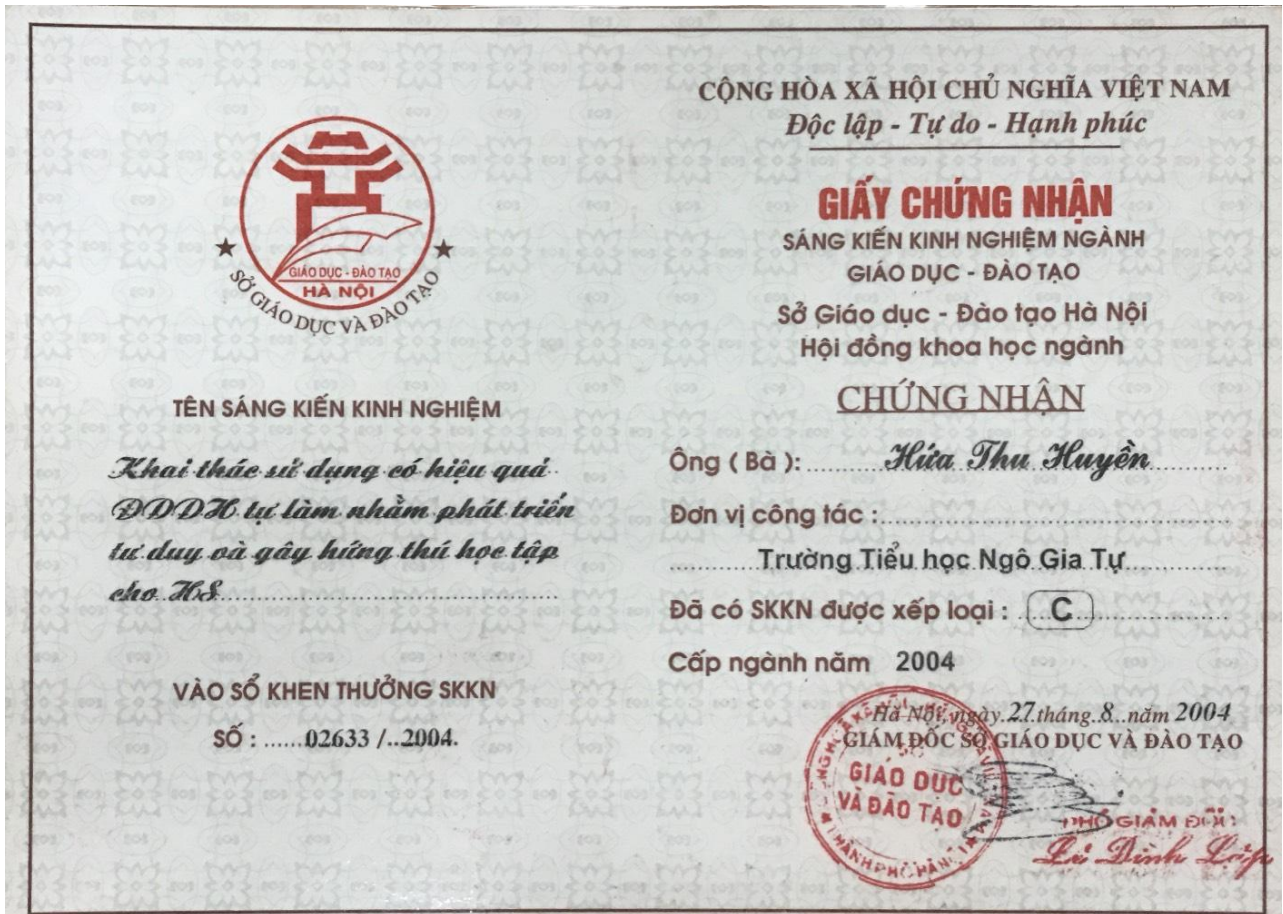 GIÁO DỤC - ĐÀO TẠO
HÀ NỘI
SỞ GIÁO DỤC VÀ ĐÀO TẠO
TÊN SÁNG KIẾN KINH NGHIỆM
Khai thác sử dụng có hiệu quả
ĐDDH tự làm nhằm phát triển
tư duy và gây hứng thú học tập
cho HS
VÀO SỔ KHEN THƯỞNG SKKN
SỐ : ......02633 /..2004.
CỘNG HÒA XÃ HỘI CHỦ NGHĨA VIỆT NAM
Độc lập - Tự do - Hạnh phúc
GIẤY CHỨNG NHẬN
SÁNG KIẾN KINH NGHIỆM NGÀNH
GIÁO DỤC - ĐÀO TẠO
Sở Giáo dục - Đào tạo Hà Nội
Hội đồng khoa học ngành
CHỨNG NHẬN
Ông ( Bà ): Hứa Thu Huyền
Đơn vị công tác :
Trường Tiểu học Ngô Gia Tự
Đã có SKKN được xếp loại : C
Cấp ngành năm 2004
Hà Nội, ngày 27 tháng 8 năm 2004
GIÁM ĐỐC SỞ GIÁO DỤC VÀ ĐÀO TẠO
SỞ
GIÁO DỤC
VÀ ĐÀO TẠO
PHÓ GIÁM ĐỐC
Lê Đình Lập